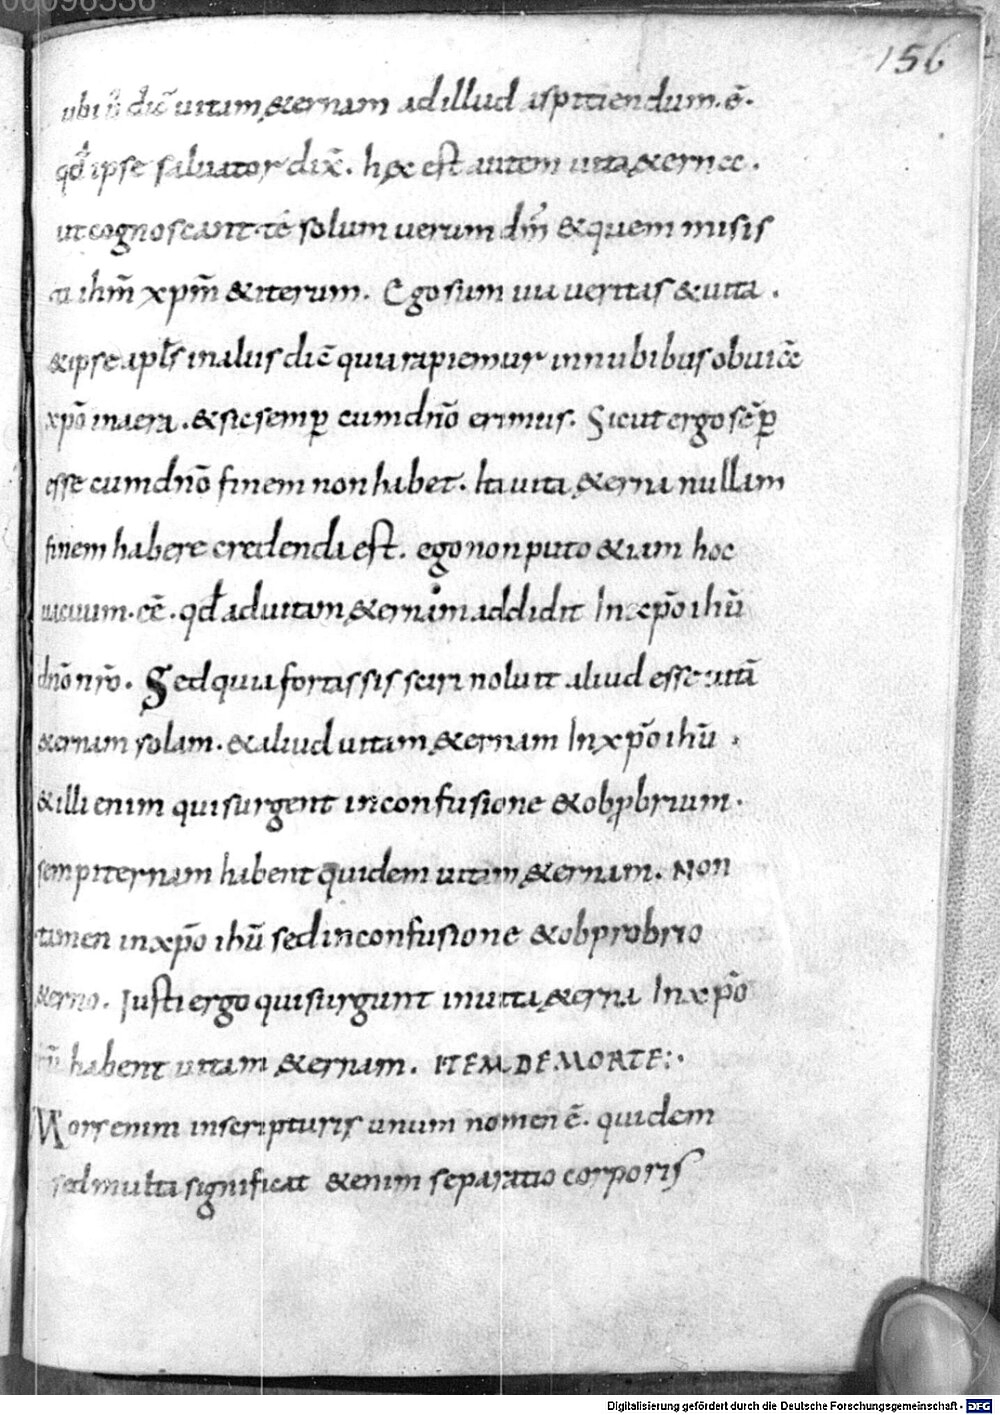 156
ubi ũ dic̃ uitam &ernam ad illud aspitiendum. ẽ.
qđ ipse saluator dix̃. h&c est autem uita &ernae.
ut cognoscant te solum uerum dm̃ & quem misis
ti ihm̃ xpm̃ & iterum. Ego sum uia ueritas & uita.
& ipse apl̃s in alus dic̃ quia rapiemur in nubibus obuiã
xpõ in aera. & sic semp̱ cum dnõ erimus. Sicut ergo sẽp̱
esse cum dnõ finem non habet. Ita uita &erna nullam
finem habere credenda est. ego non puto &iam hoc
uacuum. eẽ. qđ ad uitam &ernam addidit In xpõ ihũ
dnõ nrõ. Sed quia fortassis sciri uoluit aliud esse uitã
&ernam solam. & aliud uitam &ernam In xpõ ihũ.
& illi enim qui surgent in confusione & obp̱brium.
sempiternam habent quidem uitam &ernam. Non
tamen in xpõ ihũ sed in confusione & obprobrio
&erno. Justi ergo qui surgunt in uita &erna In xpõ
habent uitam &ernam. ITEM DE MORTE:.
Mors enim in scripturis unum nomen ẽ. quidem
sed multa significat &enim separatio corporis
Digitalisierung gefördert durch die Deutsche Forschungsgemeinschaft - DFG